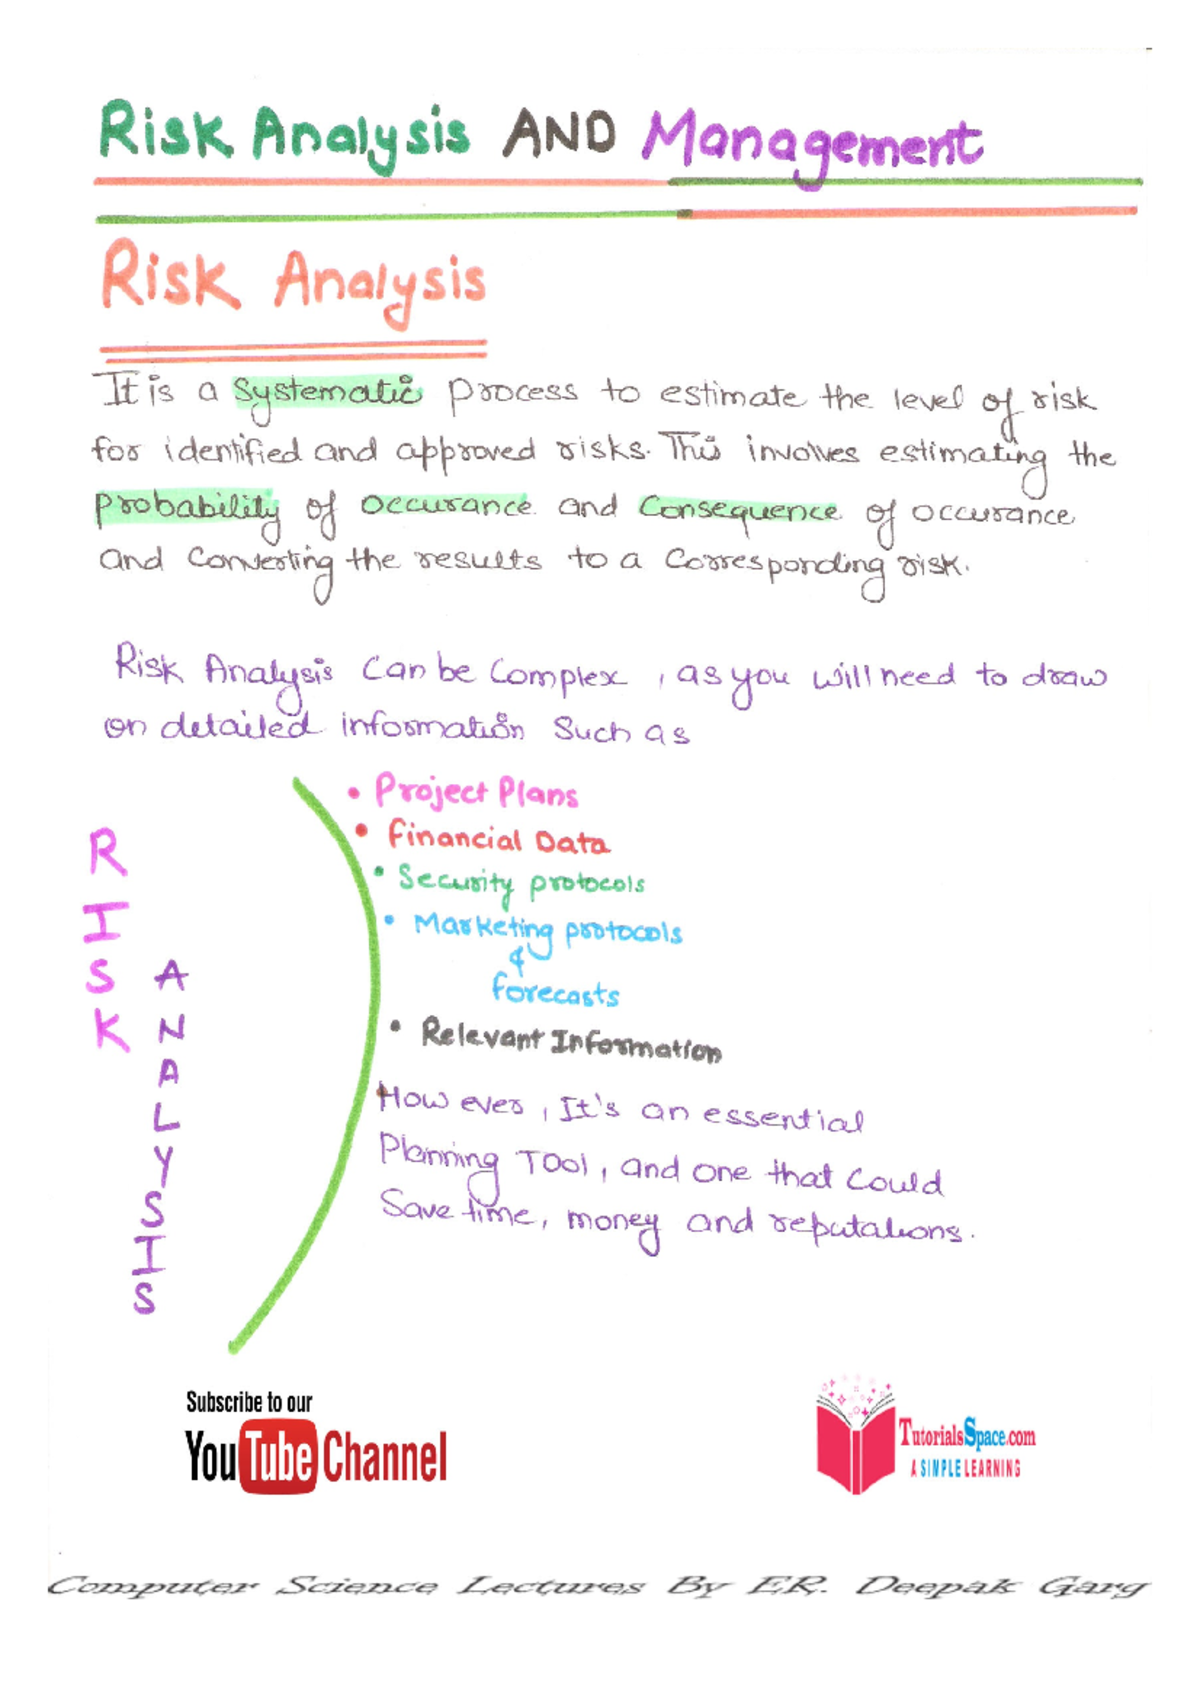 Risk Analysis AND Management
Risk Analysis
It is a Systematic process to estimate the level of risk
for identified and approved risks. This involves estimating the
probability of occurance and Consequence of occurance
and Converting the results to a Corresponding risk.
Risk Analysis Can be Complex, as you will need to draw
on detailed information Such as
• Project Plans
• Financial Data
• Security protocols
• Marketing protocols
&
forecasts
• Relevant Information
However, It's an essential
Planning Tool, and one that Could
Save time, money and reputations.
RISK
ANALYSIS
Subscribe to our
YouTube Channel
TutorialsSpace.com
A SIMPLE LEARNING
Computer Science Lectures By ER. Deepak Garg